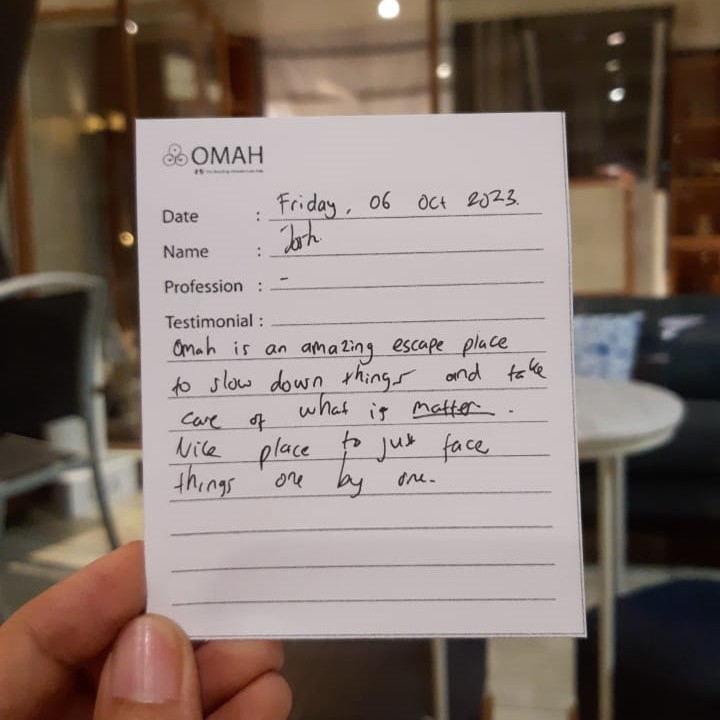 OMAH
Date : Friday, 06 Oct 2023.
Name : Josh
Profession : -
Testimonial :
Omah is an amazing escape place
to slow down things and take
care of what is matter.
Nice place to just face
things one by one.